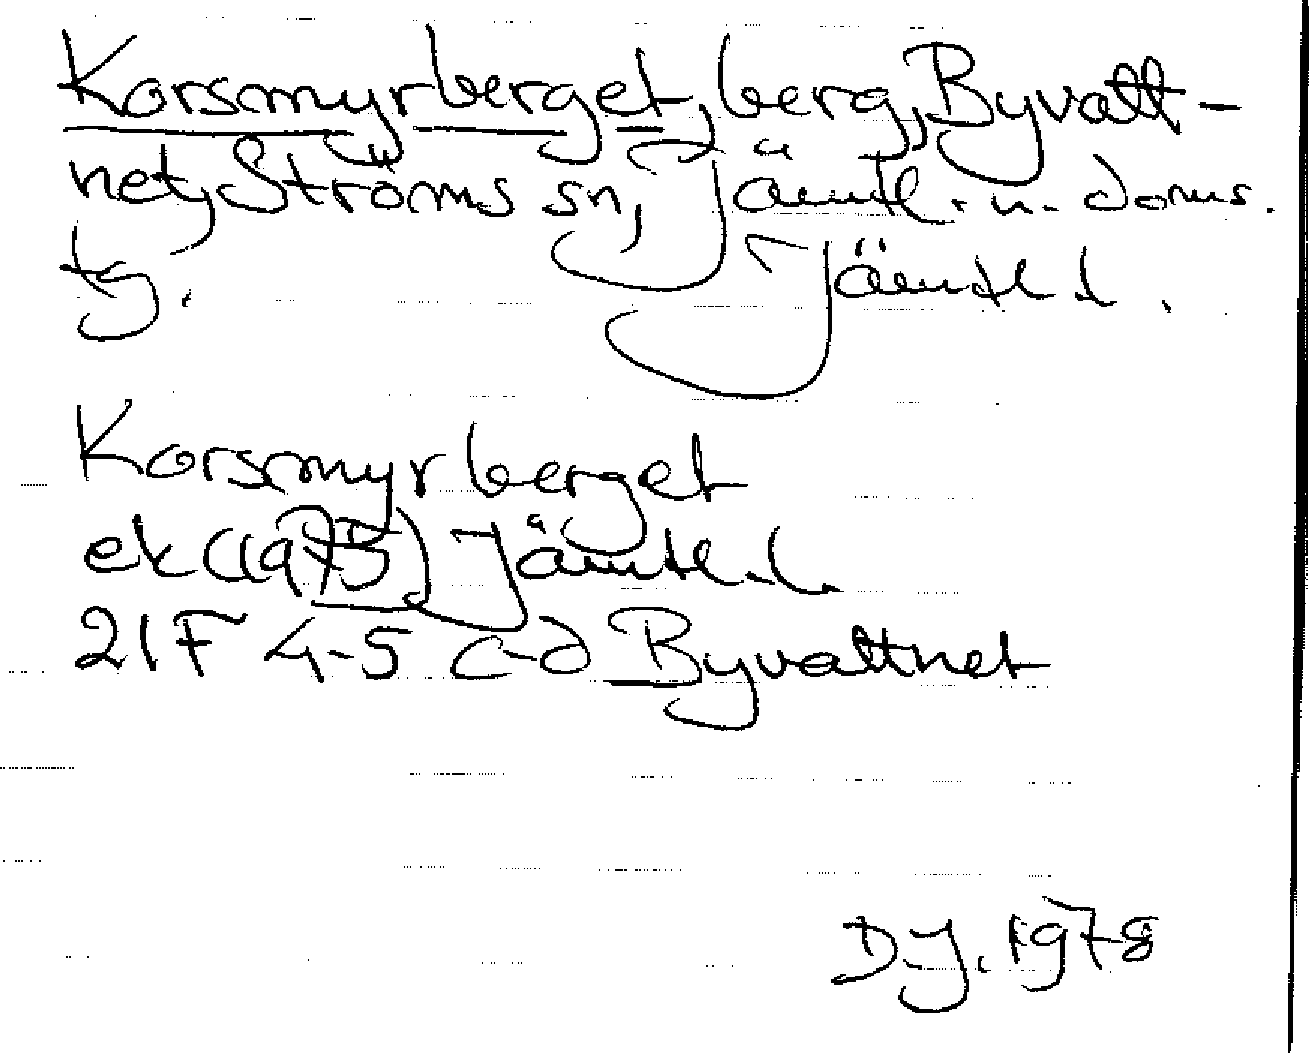 Korsmyrberget, berg, Byvatt-
net, Ströms sn, Jämtl. n. doms.
tg. Jämtl. l.
Korsmyrberget
ek (1975) Jämtl. l.
21F 4-5 c-d Byvattnet
DJ. 1978